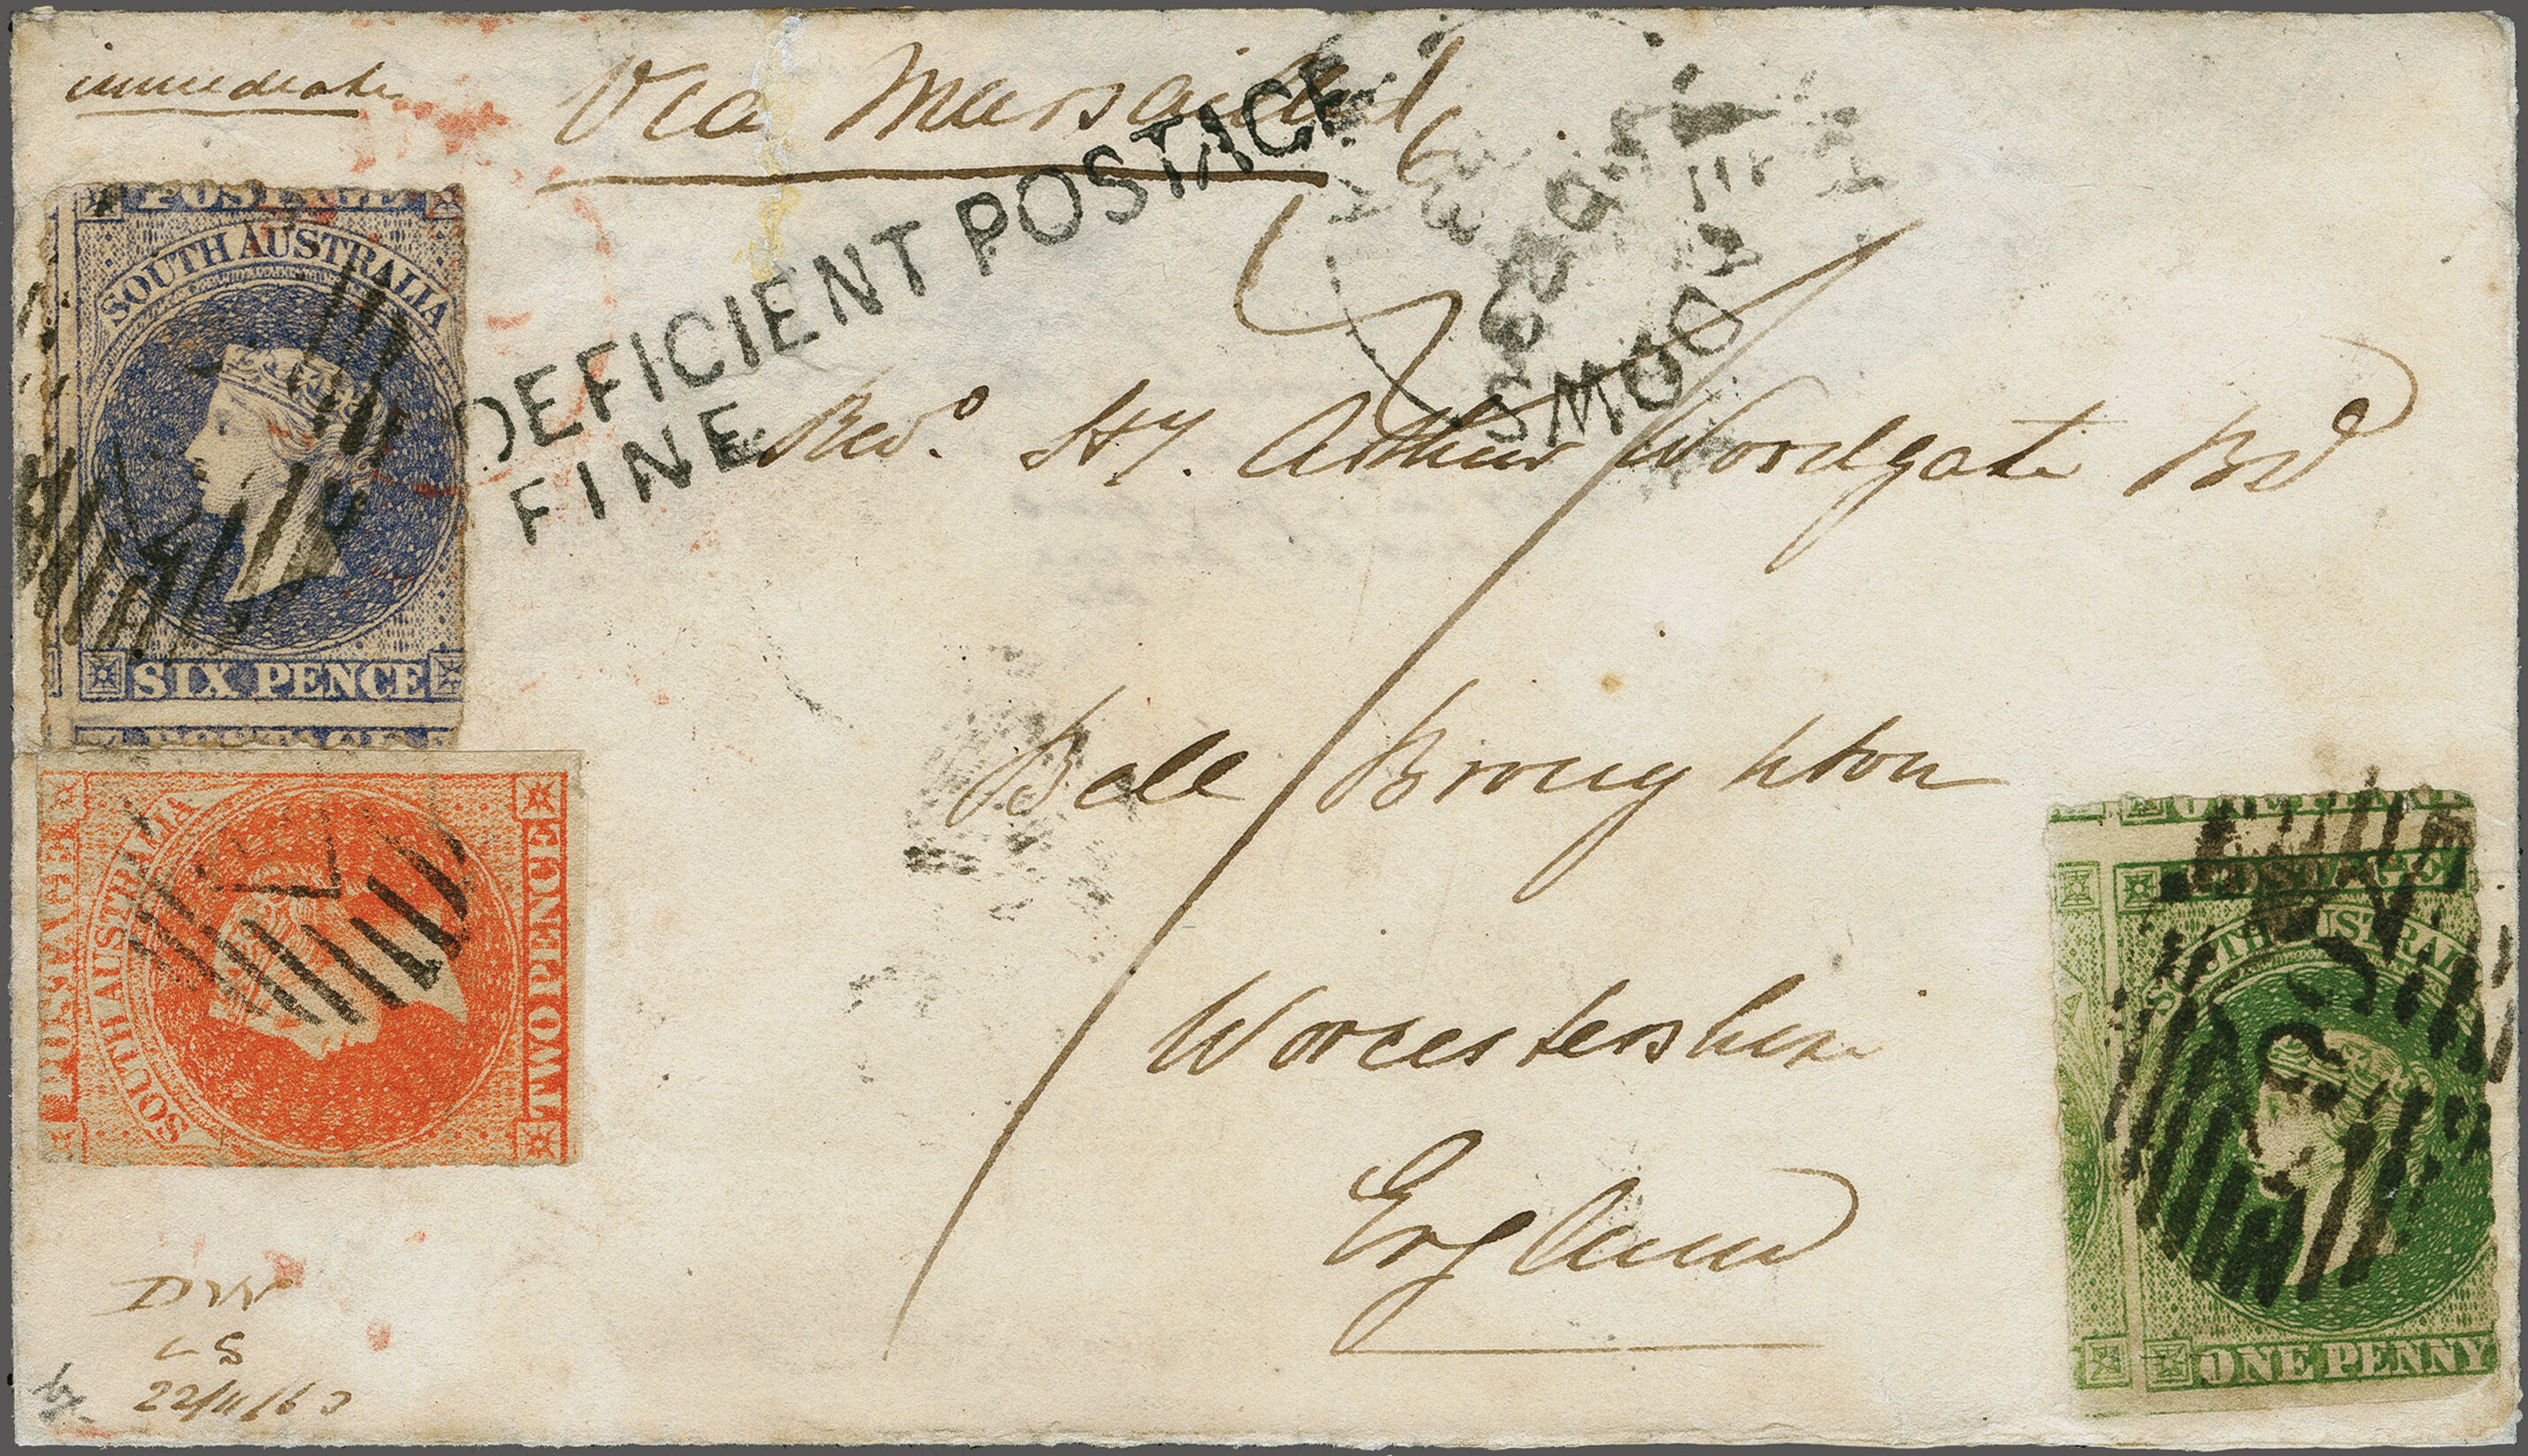 immediate
Via Marsailles
POSTAGE
SOUTH AUSTRALIA
SIX PENCE
DEFICIENT POSTAGE
FINE
Revd. Hy. Arthur Woodgate BD
Bell Broughton
Worcestershire
England
POSTAGE
SOUTH AUSTRALIA
TWO PENCE
POSTAGE
SOUTH AUSTRALIA
ONE PENNY
22/11/63